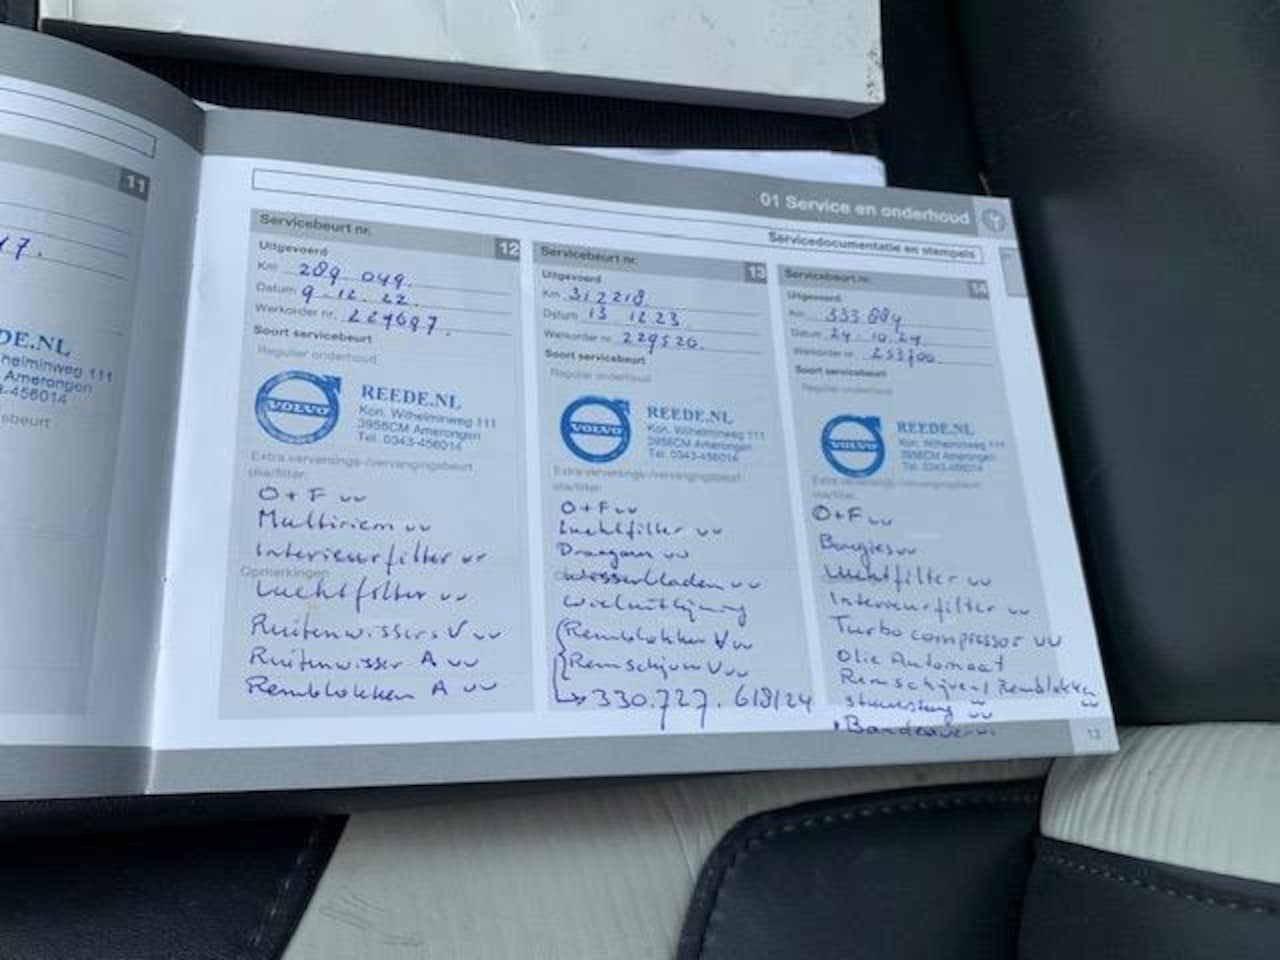 11
17.
DE.NL
helminweg 111
Amerongen
3-456014
sbeurt
01 Service en onderhoud
Servicedocumentatie en stempels
Servicebeurt nr. 12
Uitgevoerd
Km 289 049.
Datum 9-12. 22.
Werkorder nr.
Soort servicebeurt
Regulier onderhoud
VOLVO
REEDE.NL
Kon. Wilhelminweg 111
3958CM Amerongen
Tel. 0343-456014
Extra verversings-/vervangingsbeurt
olie/filter:
O+F vv
Multiriem vv
Interieurfilter vv
Opmerkingen
Luchtfilter vv
Ruitenwissers V vv
Ruitenwisser A vv
Remblokken A vv
Servicebeurt nr. 13
Uitgevoerd
Km 312218.
Datum 13 12.23.
Werkorder nr. 229520.
Soort servicebeurt
Regulier onderhoud
VOLVO
REEDE.NL
Kon. Wilhelminweg 111
3958CM Amerongen
Tel. 0343-456014
Extra verversings-/vervangingsbeurt
olie/filter:
O+F vv
Luchtfilter vv
Draagarm vv
Wisserbladen vv
Wieluitlijning
Remblokken V vv
Remschijven V vv
330.727. 618124
Servicebeurt nr. 14
Uitgevoerd
Km 333 884
Datum 24. 10.24
Werkorder nr. 233700
Soort servicebeurt
Regulier onderhoud
VOLVO
REEDE.NL
Kon. Wilhelminweg 111
3958CM Amerongen
Tel. 0343-456014
Extra verversings-/vervangingsbeurt
olie/filter:
O+F vv
Bougies vv
Luchtfilter vv
Interieurfilter vv
Turbocompressor vv
Olie Automaat
Remschijven/Remblokken vv
vv
13